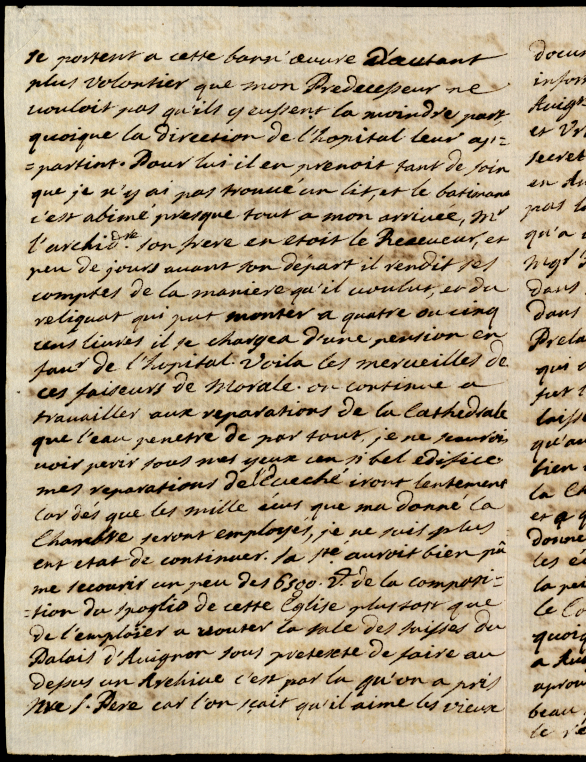 se portent a cette bonn' œuvre d'autant
plus volontier que mon Predecesseur ne
vouloit pas qu'ils y eussent la moindre part
quoique la direction de l'hopital leur ap=
=partint. Pour lui il en prenoit tant de soin
que je n'y ai pas trouvé un lit, et le batimant
c'est abimé presque tout a mon arrivée, Mr
l'archid.re son frere en etoit le Receveur, et
peu de jours avant son départ il rendit ses
comptes de la maniere qu'il voulut, et du
reliquat qui put monter a quatre ou cinq
cens livres il se chargea d'une pension en
fav.r de l'hopital. Voila les merveilles de
ces faiseurs de Morale. on continue a
travailler aux reparations de la Cathedrale
que l'eau penetre de par tout, je ne scaurois
voir perir sous mes yeux un si bel edifice.
mes reparations de l'Eveché iront lentement
car dés que les mille écus que ma donné la
Chambre seront employés, je ne suis plus
ent etat de continuer. Sa Sté. auroit bien pû
me secourir un peu des 6500. de la composi=
=tion du spoglio de cette Eglise plustost que
de l'emploier a vouter la sale des suisses du
Palais d'Avignon sous pretexte de faire au
dessus un Archive c'est par la qu'on a pris
S. Pere car l'on sçait qu'il aime les vieux
docum
infor
Avig
et
secret
en
pas l
qu'a
Mgr
dans
dans
Prela
qui
fut
laiss
qu'au
bien
la
et
donne
les
la
le
quoi
a
aprou
beau
le